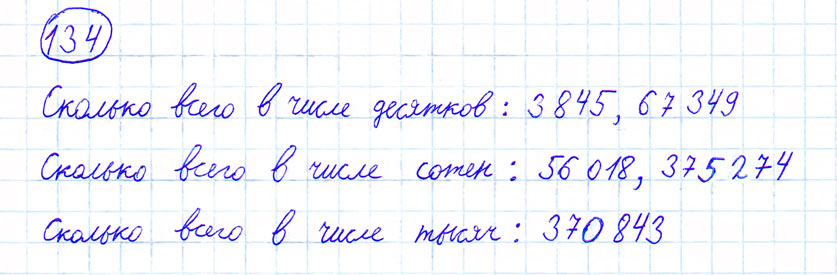 134
Сколько всего в числе десятков: 3845, 67349
Сколько всего в числе сотен: 56018, 375274
Сколько всего в числе тысяч: 370843